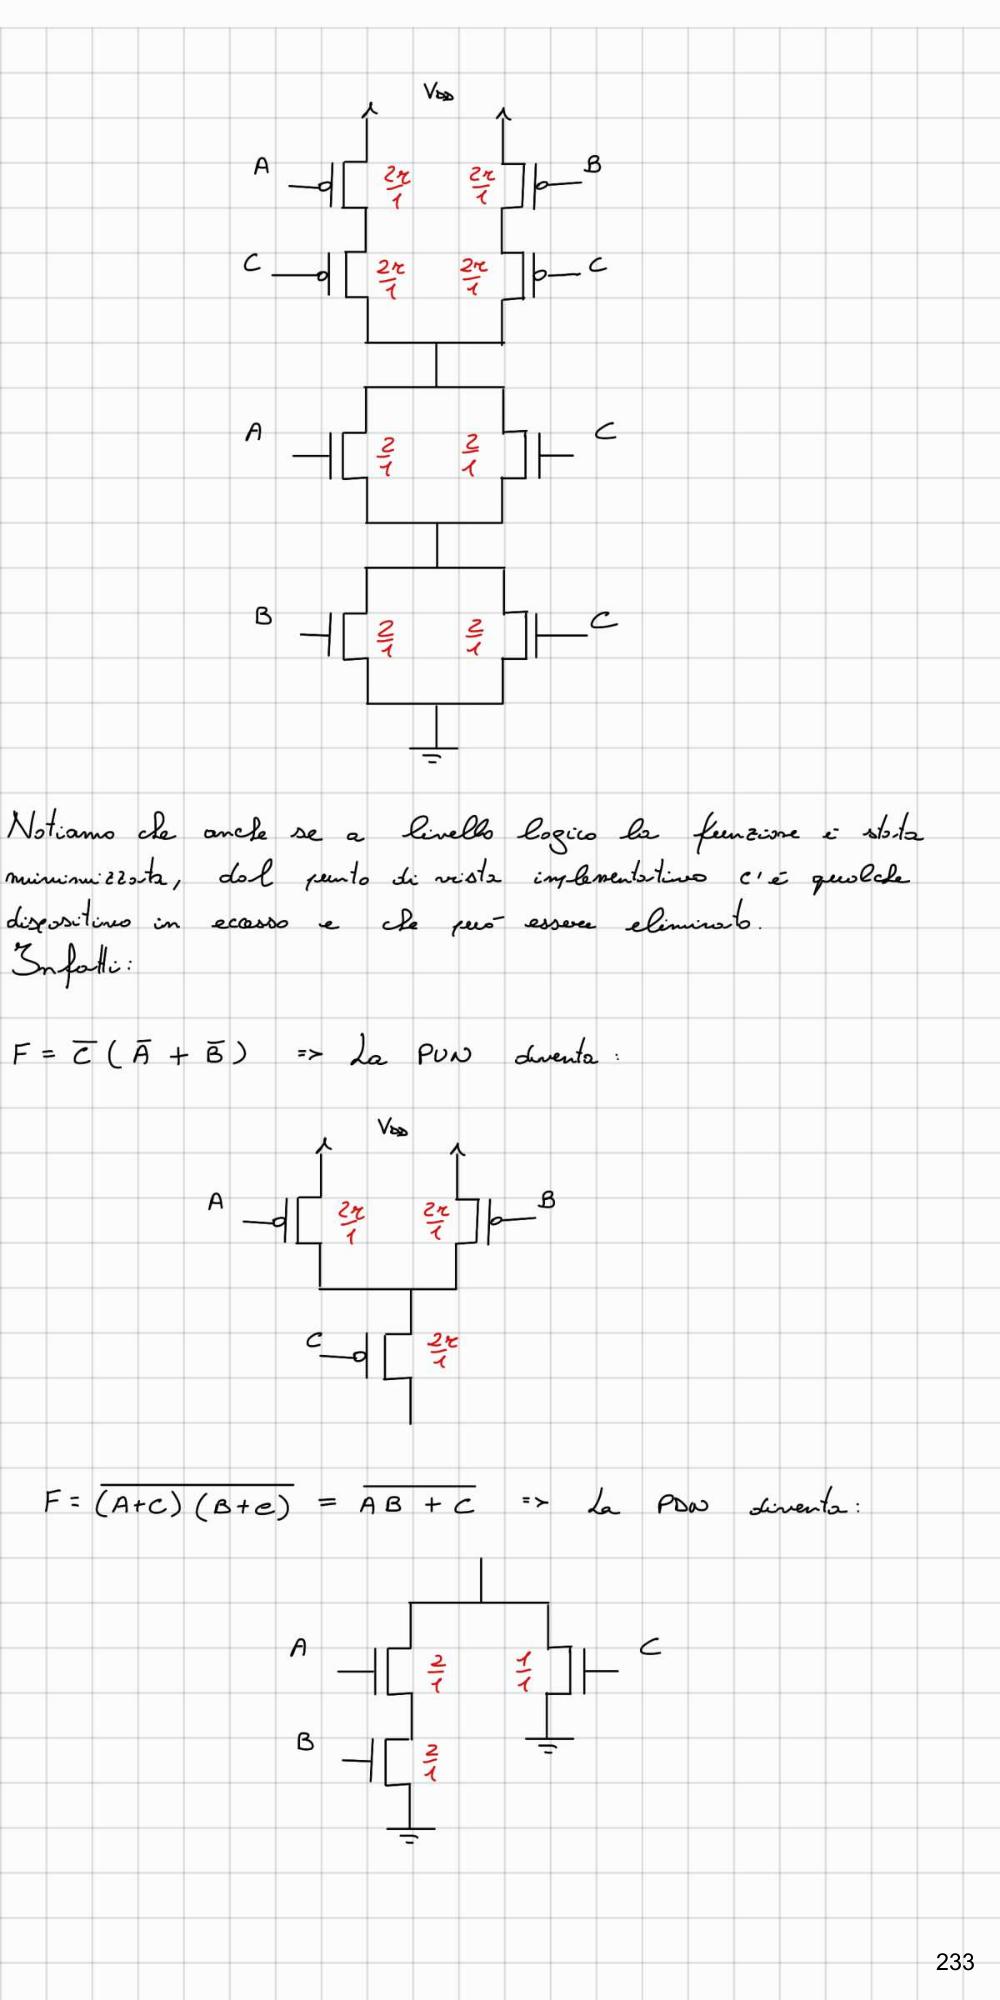 VDD
A 2r/1 2r/1 B
C 2r/1 2r/1 C
A 2/1 2/1 C
B 2/1 2/1 C
Notiamo che anche se a livello logico la funzione è stata
minimizzata, dal punto di vista implementativo c'è qualche
dispositivo in eccesso e che può essere eliminato.
Infatti:
F = C̅ ( A̅ + B̅ ) => La PUN diventa :
VDD
A 2r/1 2r/1 B
C 2r/1
F = \overline{(A+C) (B+C)} = \overline{AB + C} => La PDN diventa :
A 2/1 1/1 C
B 2/1
233